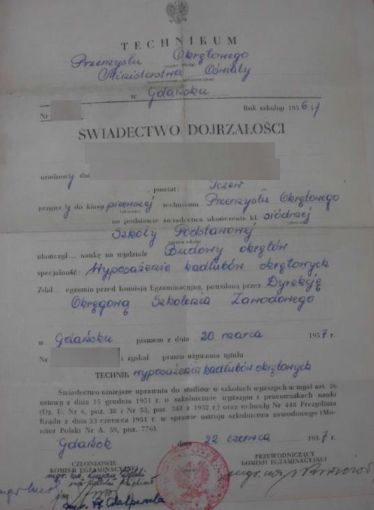 TECHNIKUM
Przemysłu Okrętowego
Ministerstwa Oświaty
w Gdańsku
Nr
Rok szkolny 1956/7
ŚWIADECTWO DOJRZAŁOŚCI
urodzony dnia
powiat: Tczew
przyjęty do klasy pierwszej technikum Przemysłu Okrętowego
na podstawie świadectwa ukończenia kl. siódmej
Szkoły Podstawowej
ukończył naukę na wydziale Budowy okrętów
specjalność: Wyposażenie kadłubów okrętowych
Zdał egzamin przed Komisją Egzaminacyjną, powołaną przez Dyrekcję
Okręgową Szkolenia Zawodowego
w Gdańsku pismem z dnia 20 marca 1957 r.
Nr i zyskał prawo używania tytułu
TECHNIK wyposażenia kadłubów okrętowych
Świadectwo niniejsze uprawnia do studiów w szkołach wyższych w myśl art. 36
ustawy z dnia 15 grudnia 1951 r. o szkolnictwie wyższym i pracownikach nauki
(Dz. U. Nr 6, poz. 38 i Nr 53, poz. 541 z 1952 r.) oraz uchwały Nr 448 Prezydium
Rządu z dnia 23 czerwca 1951 r. w sprawie ustroju szkolnictwa zawodowego (Mo-
nitor Polski Nr A. 59, poz. 776).
Gdańsk dnia 22 czerwca 1957 r.
CZŁONKOWIE
KOMISJI EGZAMINACYJNEJ
PRZEWODNICZĄCY
KOMISJI EGZAMINACYJNEJ